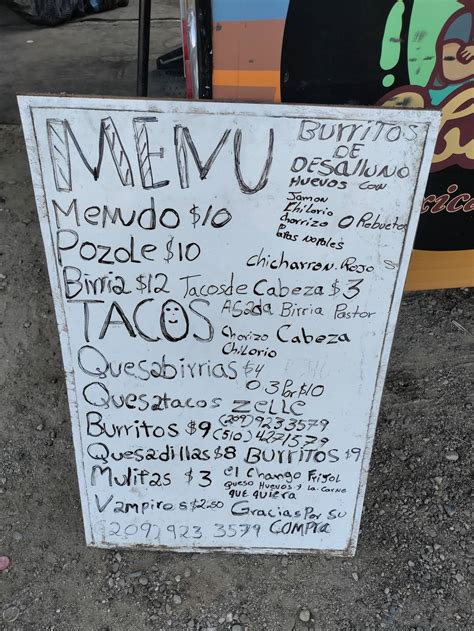 MENU
Menudo $10
Pozole $10
Birria $12 Tacos de Cabeza $3
TACOS Asada Birria Pastor
Chorizo Cabeza
Chilorio
Quesabirrias $4
o 3 Por $10
Quesatacos Zelle
Burritos $9 (209) 923 3579
(510) 4271579
Quesadillas $8 Burritos $9
Mulitas $3 el Chango Frijol
queso Huevos y La Carne
que quiera
Vampiros $2.50 Gracias Por Su
(209) 923 3579 COMPra
Burritos
DE
Desalluno
Huevos con
Jamon
Chilorio
Chorrizo O Rebueltos
Papas Nopales
chicharron Rojo